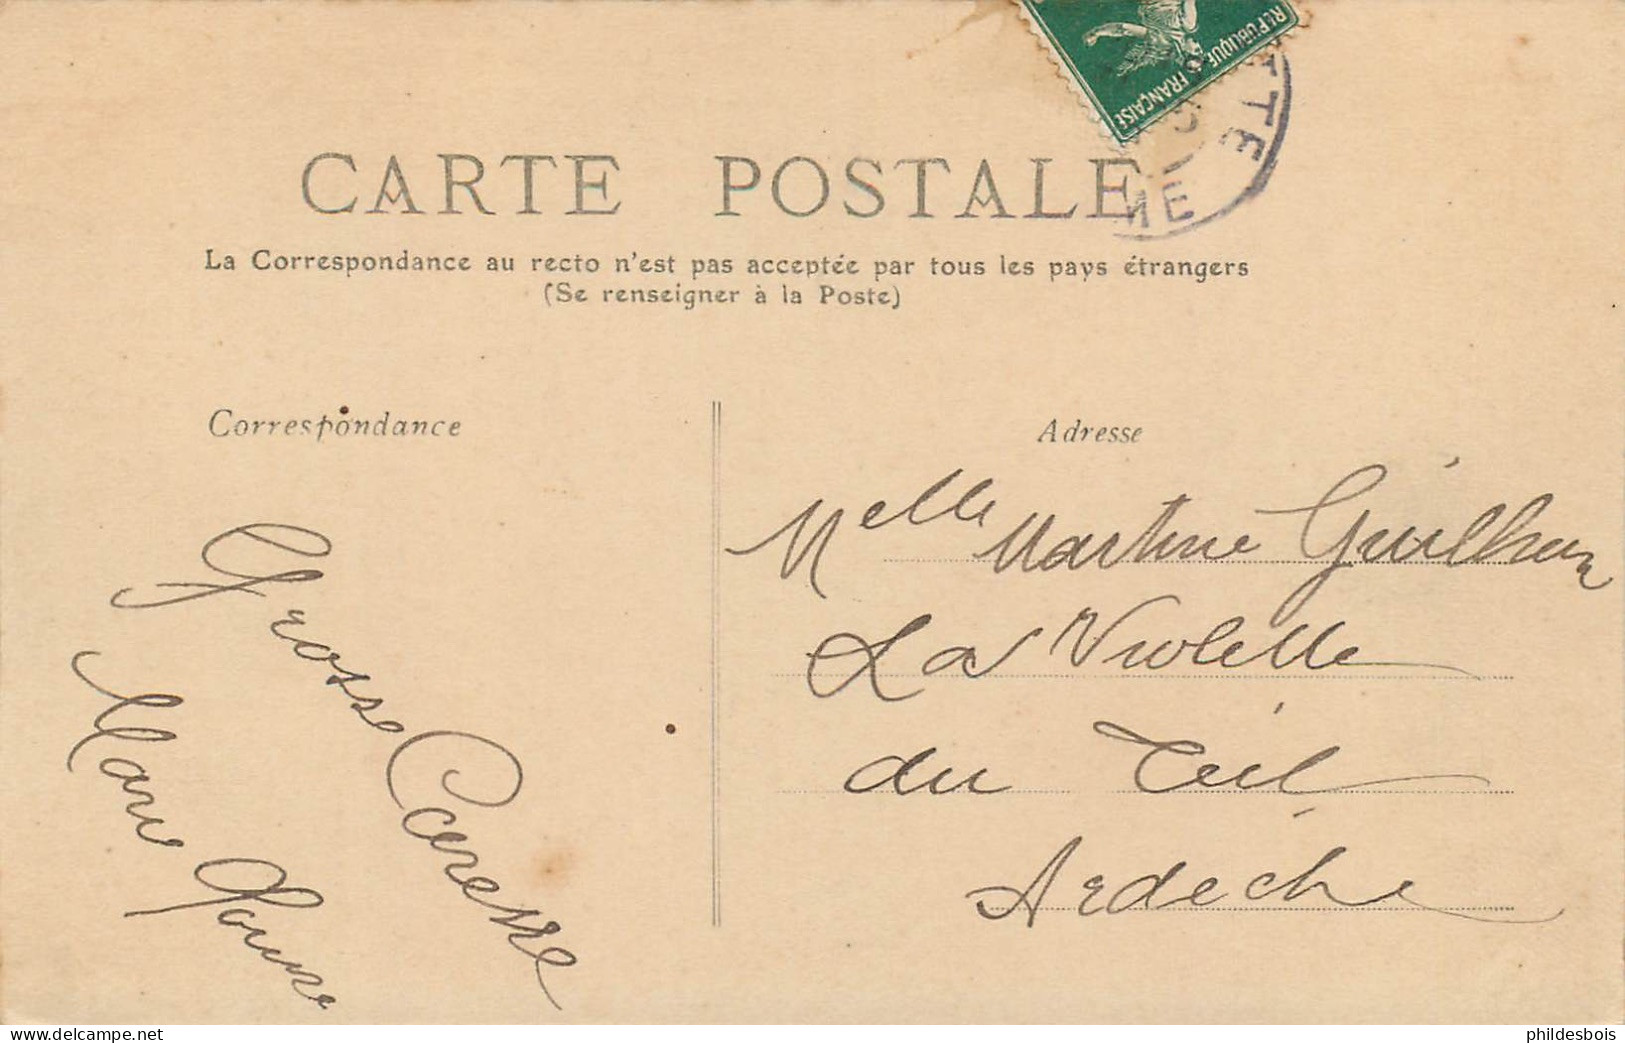 REPUBLIQUE FRANÇAISE
TTE
ME
CARTE POSTALE
La Correspondance au recto n'est pas acceptée par tous les pays étrangers
(Se renseigner à la Poste)
Correspondance
Grosse Caresse
Adresse
Melle Martine Guilhem
La Violette
du Teil
Ardeche
www.delcampe.net
phildesbois